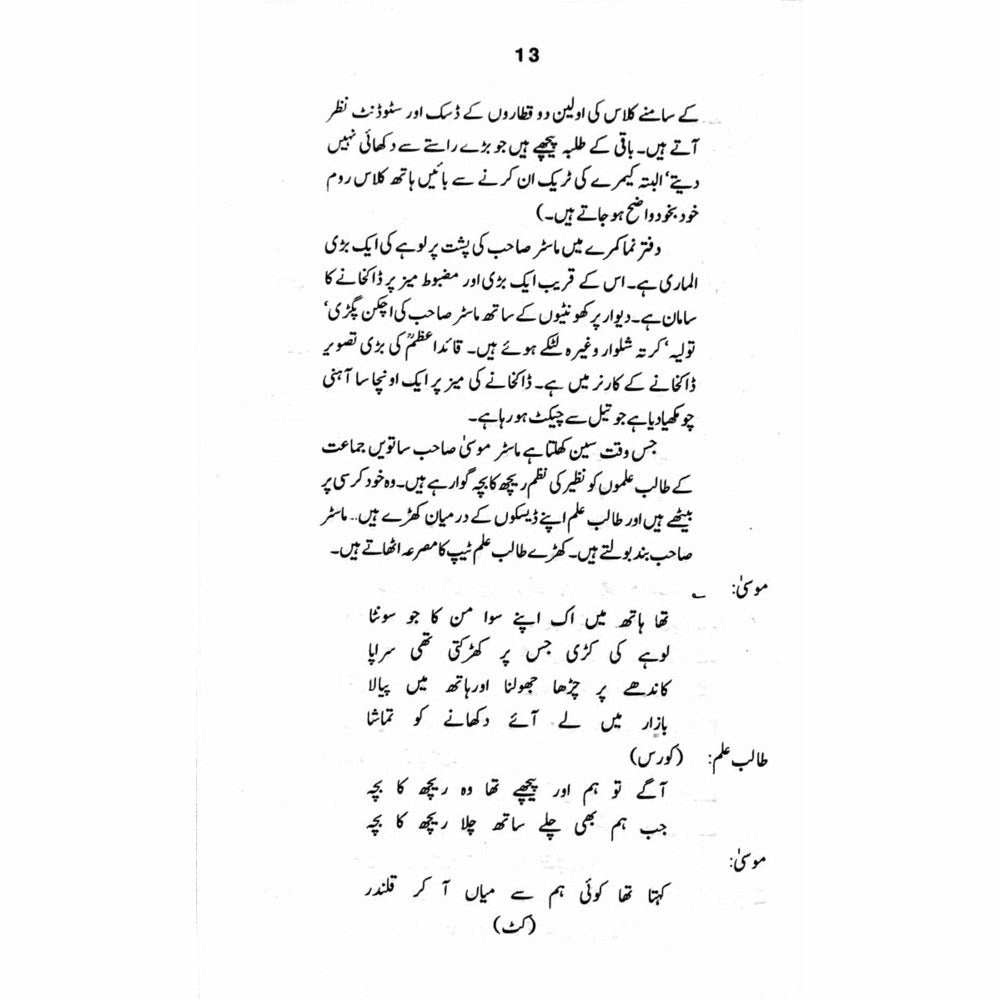 13
کے سامنے کلاس کی اولین دو قطاروں کے ڈسک اور سٹوڈنٹ نظر
آتے ہیں۔ باقی کے طلبہ پیچھے ہیں جو بڑے راستے سے دکھائی نہیں
دیتے‘ البتہ کیمرے کی ٹریک ان کرنے سے بائیں ہاتھ کلاس روم
خود بخود واضح ہو جاتے ہیں۔)
دفتر نما کمرے میں ماسٹر صاحب کی پشت پر لوہے کی ایک بڑی
الماری ہے۔ اس کے قریب ایک بڑی اور مضبوط میز پر ڈاکخانے کا
سامان ہے۔ دیوار پر کھونٹیوں کے ساتھ ماسٹر صاحب کی اچکن پگڑی‘
تولیہ‘ کرتہ شلوار وغیرہ لٹکے ہوئے ہیں۔ قائداعظمؒ کی بڑی تصویر
ڈاکخانے کے کارنر میں ہے۔ ڈاکخانے کی میز پر ایک اونچا سا آہنی
چومکھیا دیا ہے جو تیل سے چیکٹ ہو رہا ہے۔
جس وقت سین کھلتا ہے ماسٹر موسیٰ صاحب ساتویں جماعت
کے طالب علموں کو نظیر کی نظم ریچھ کا بچہ گوا رہے ہیں۔ وہ خود کرسی پر
بیٹھے ہیں اور طالب علم اپنے ڈیسکوں کے درمیان کھڑے ہیں.. ماسٹر
صاحب بند بولتے ہیں۔ کھڑے طالب علم ٹیپ کا مصرعہ اٹھاتے ہیں۔
موسیٰ: ؎
تھا ہاتھ میں اک اپنے سوا من کا جو سونٹا
لوہے کی کڑی جس پر کھڑکتی تھی سراپا
کاندھے پر چڑھا جھولنا اور ہاتھ میں پیالا
بازار میں لے آئے دکھانے کو تماشا
طالب علم: (کورس)
آگے تو ہم اور پیچھے تھا وہ ریچھ کا بچہ
جب ہم بھی چلے ساتھ چلا ریچھ کا بچہ
موسیٰ:
کہتا تھا کوئی ہم سے میاں آ کر قلندر
(کٹ)